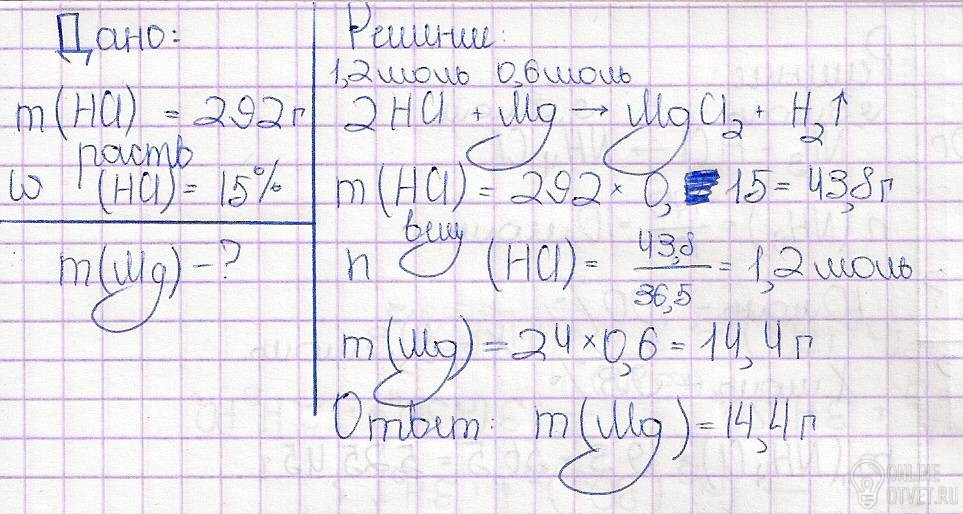 Дано:
m(HCl) = 292г
раств
ω (HCl) = 15%
m(Mg) - ?
Решение:
1,2моль 0,6моль
2HCl + Mg → MgCl₂ + H₂↑
m(HCl) = 292 × 0,15 = 43,8г
вещ
n (HCl) = 43,8/36,5 = 1,2моль
m(Mg) = 24 × 0,6 = 14,4г
Ответ: m(Mg) = 14,4г
ONLINE
OTVET.RU